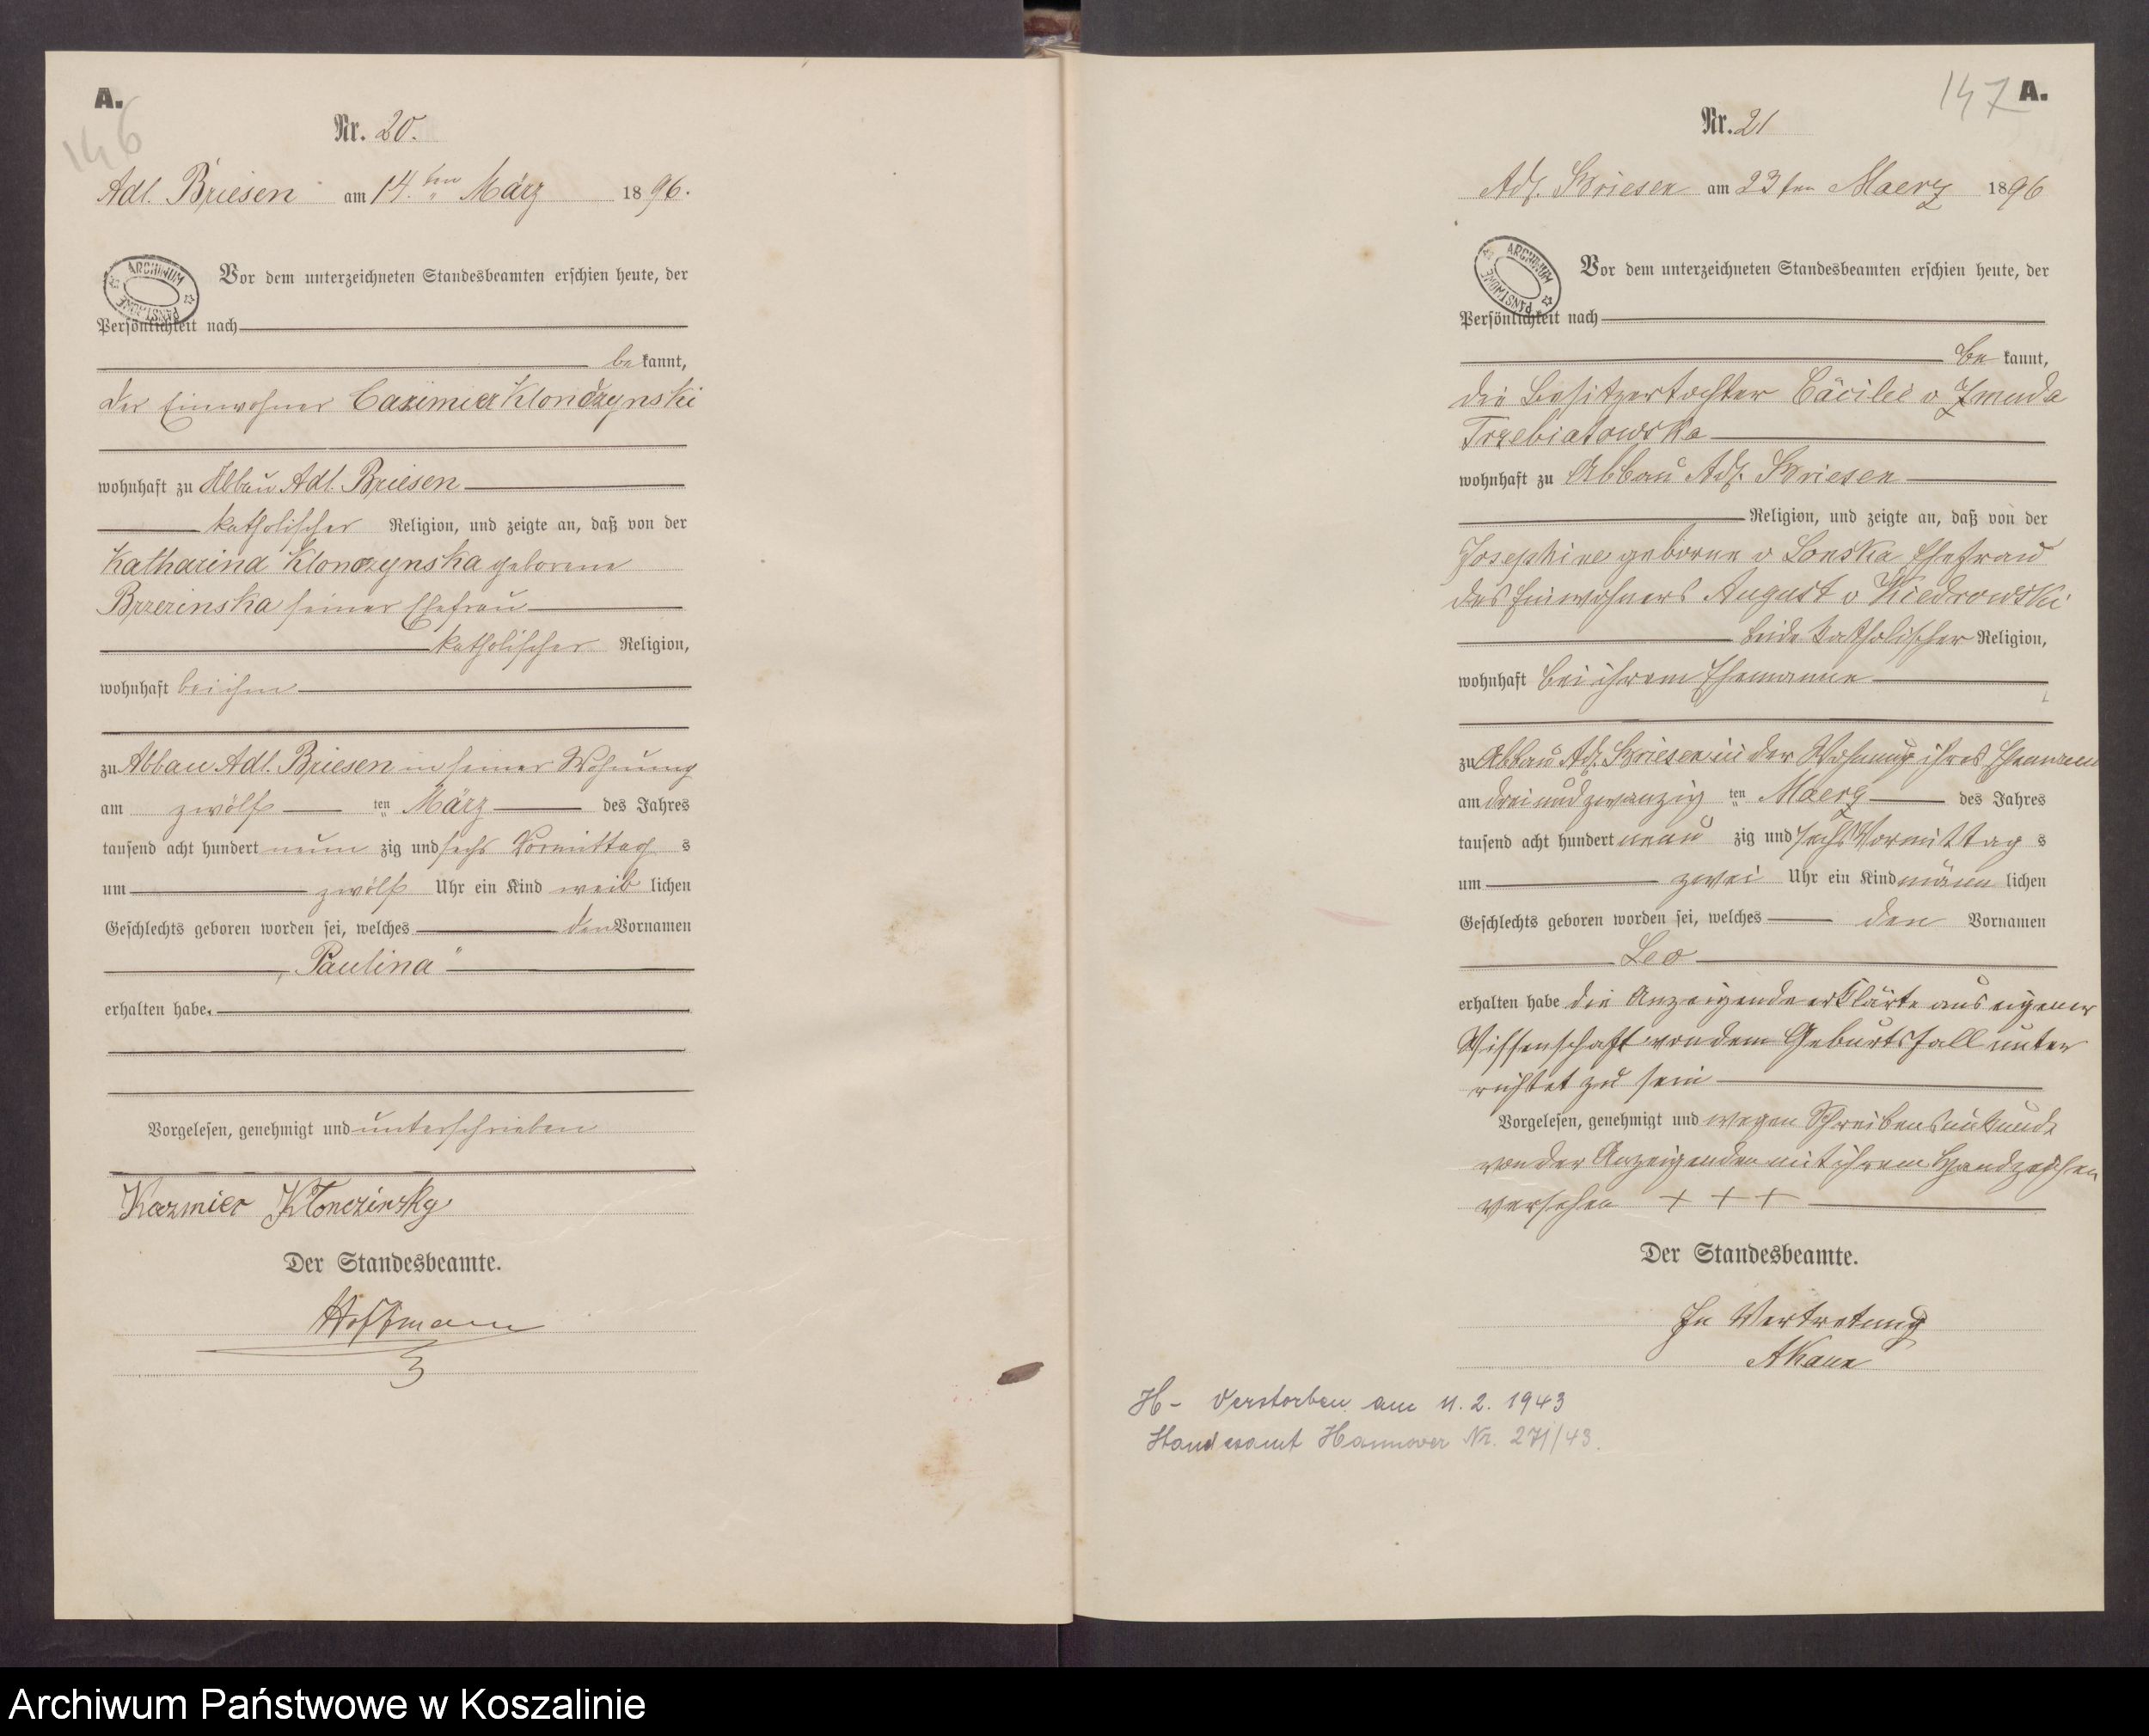 A.
146
Nr. 20.
Adl. Briesen am 14.ten März 1896.
ARCHIWUM PAŃSTWOWE
Vor dem unterzeichneten Standesbeamten erschien heute, der
Persönlichkeit nach
be kannt,
der Einwohner Casimier Klonczynski
wohnhaft zu Abbau Adl. Briesen
katholischer Religion, und zeigte an, daß von der
Katharina Klonczynska geborene
Brzezinska seiner Ehefrau
katholischer Religion,
wohnhaft bei ihm
zu Abbau Adl. Briesen in seiner Wohnung
am zwölf ten März des Jahres
tausend acht hundert neun zig und sechs Vormittag s
um zwölf Uhr ein Kind weib lichen
Geschlechts geboren worden sei, welches den Vornamen
„Paulina“
erhalten habe.
Vorgelesen, genehmigt und unterschrieben
Kazmier Klonczinsky
Der Standesbeamte.
Hoffmann
147 A.
Nr. 21
Adl. Briesen am 23ten Maerz 1896
ARCHIWUM PAŃSTWOWE
Vor dem unterzeichneten Standesbeamten erschien heute, der
Persönlichkeit nach
be kannt,
die Besitzertochter Cäcilie v Zmuda
Trzebiatowska
wohnhaft zu Abbau Adl. Briesen
Religion, und zeigte an, daß von der
Josephine geborne v Lonska Ehefrau
des Einwohners August v Kiedrowski
beide katholischer Religion,
wohnhaft bei ihrem Ehemanne
zu Abbau Adl. Briesen in der Wohnung ihres Ehemannes
am drei und zwanzig ten Maerz des Jahres
tausend acht hundert neun zig und sechs Vormittag s
um zwei Uhr ein Kind männ lichen
Geschlechts geboren worden sei, welches den Vornamen
Leo
erhalten habe die Anzeigende erklärte aus eigener
Wissenschaft von dem Geburtsfall unter
richtet zu sein
Vorgelesen, genehmigt und wegen Schreibensunkunde
von der Anzeigenden mit ihrem Handzeichen
versehen + + +
Der Standesbeamte.
In Vertretung
H- Verstorben am 11.2.1943
Standesamt Hannover Nr. 271/43.
Archiwum Państwowe w Koszalinie